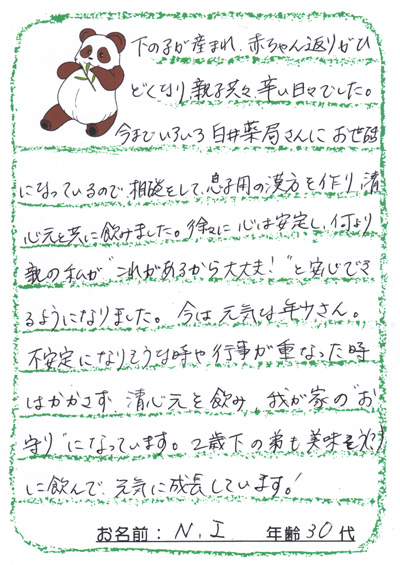 下の子が産まれ、赤ちゃん返りがひ
どくなり親子共々辛い日々でした。
今までいろいろ臼井薬局さんにお世話
になっているので相談をして、息子用の漢方を作り、清
心元と共に飲みました。徐々に心は安定し、何より
親の私が"これがあるから大丈夫!"と安心でき
るようになりました。今は元気な年中さん。
不安定になりそうな時や行事が重なった時
はかかさず清心元を飲み、我が家の"お
守り"になっています。2歳下の弟も美味しそう
に飲んで、元気に成長しています!
お名前:N.I 年齢30代